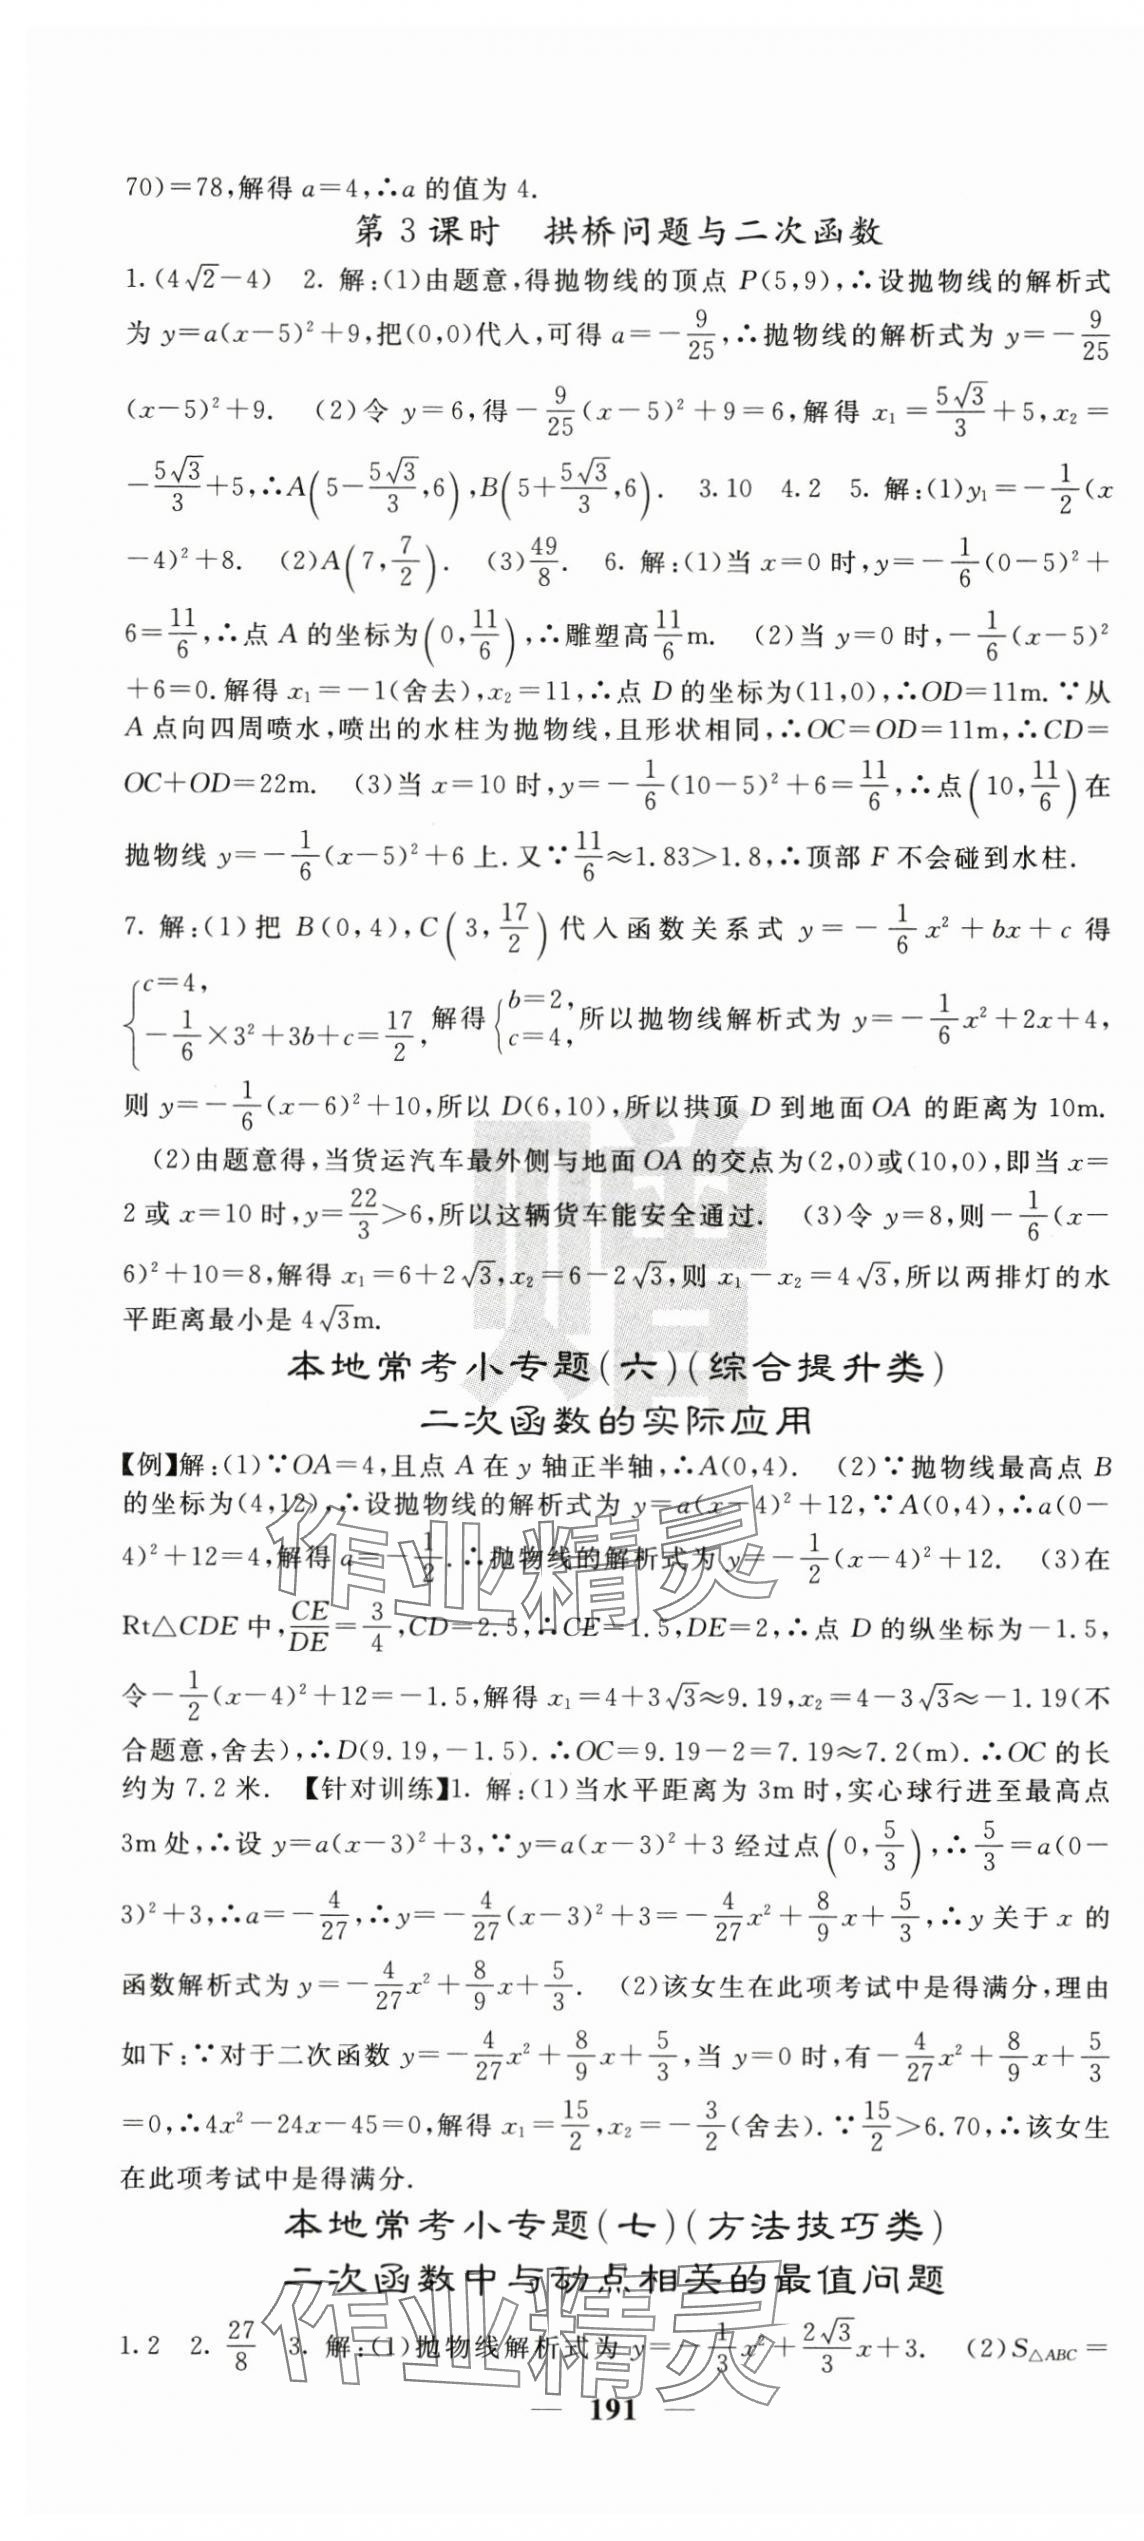 70)=78,解得 a=4,∴a 的值为 4.
第 3 课时　拱桥问题与二次函数
1. (4√2-4)　2. 解:(1)由题意,得抛物线的顶点 P(5,9),∴设抛物线的解析式
为 y=a(x-5)²+9,把(0,0)代入,可得 a=-9/25,∴抛物线的解析式为 y=-9/25
(x-5)²+9.　(2)令 y=6,得-9/25(x-5)²+9=6,解得 x₁=5√3/3+5,x₂=
-5√3/3+5,∴A(5-5√3/3,6),B(5+5√3/3,6).　3. 10　4. 2　5. 解:(1)y₁=-1/2(x
-4)²+8.　(2)A(7,7/2).　(3)49/8.　6. 解:(1)当 x=0 时,y=-1/6(0-5)²+
6=11/6,∴点 A 的坐标为(0,11/6),∴雕塑高11/6m.　(2)当 y=0 时,-1/6(x-5)²
+6=0. 解得 x₁=-1(舍去),x₂=11,∴点 D 的坐标为(11,0),∴OD=11m. ∵从
A 点向四周喷水,喷出的水柱为抛物线,且形状相同,∴OC=OD=11m,∴CD=
OC+OD=22m.　(3)当 x=10 时,y=-1/6(10-5)²+6=11/6,∴点(10,11/6)在
抛物线 y=-1/6(x-5)²+6 上. 又∵11/6≈1.83>1.8,∴顶部 F 不会碰到水柱.
7. 解:(1)把 B(0,4),C(3,17/2)代入函数关系式 y=-1/6x²+bx+c 得
{c=4, -1/6×3²+3b+c=17/2, 解得{b=2, c=4, 所以抛物线解析式为 y=-1/6x²+2x+4,
则 y=-1/6(x-6)²+10,所以 D(6,10),所以拱顶 D 到地面 OA 的距离为 10m.
(2)由题意得,当货运汽车最外侧与地面 OA 的交点为(2,0)或(10,0),即当 x=
2 或 x=10 时,y=22/3>6,所以这辆货车能安全通过.　(3)令 y=8,则-1/6(x-
6)²+10=8,解得 x₁=6+2√3,x₂=6-2√3,则 x₁-x₂=4√3,所以两排灯的水
平距离最小是 4√3m.
赠
本地常考小专题(六)(综合提升类)
二次函数的实际应用
【例】解:(1)∵OA=4,且点 A 在 y 轴正半轴,∴A(0,4).　(2)∵抛物线最高点 B
的坐标为(4,12),∴设抛物线的解析式为 y=a(x-4)²+12,∵A(0,4),∴a(0-
4)²+12=4,解得 a=-1/2. ∴抛物线的解析式为 y=-1/2(x-4)²+12.　(3)在
作业精灵
Rt△CDE 中,CE/DE=3/4,CD=2.5,∴CE=1.5,DE=2,∴点 D 的纵坐标为-1.5,
令-1/2(x-4)²+12=-1.5,解得 x₁=4+3√3≈9.19,x₂=4-3√3≈-1.19(不
合题意,舍去),∴D(9.19,-1.5). ∴OC=9.19-2=7.19≈7.2(m). ∴OC 的长
约为 7.2 米.　【针对训练】1. 解:(1)当水平距离为 3m 时,实心球行进至最高点
3m 处,∴设 y=a(x-3)²+3,∵y=a(x-3)²+3 经过点(0,5/3),∴5/3=a(0-
3)²+3,∴a=-4/27,∴y=-4/27(x-3)²+3=-4/27x²+8/9x+5/3,∴y 关于 x 的
函数解析式为 y=-4/27x²+8/9x+5/3.　(2)该女生在此项考试中是得满分,理由
如下:∵对于二次函数 y=-4/27x²+8/9x+5/3,当 y=0 时,有-4/27x²+8/9x+5/3
=0,∴4x²-24x-45=0,解得 x₁=15/2,x₂=-3/2(舍去). ∵15/2>6.70,∴该女生
在此项考试中是得满分.
本地常考小专题(七)(方法技巧类)
二次函数中与动点相关的最值问题
作业精灵
1. 2　2. 27/8　3. 解:(1)抛物线解析式为 y=-1/3x²+2√3/3x+3.　(2)S△ABC=
— 191 —